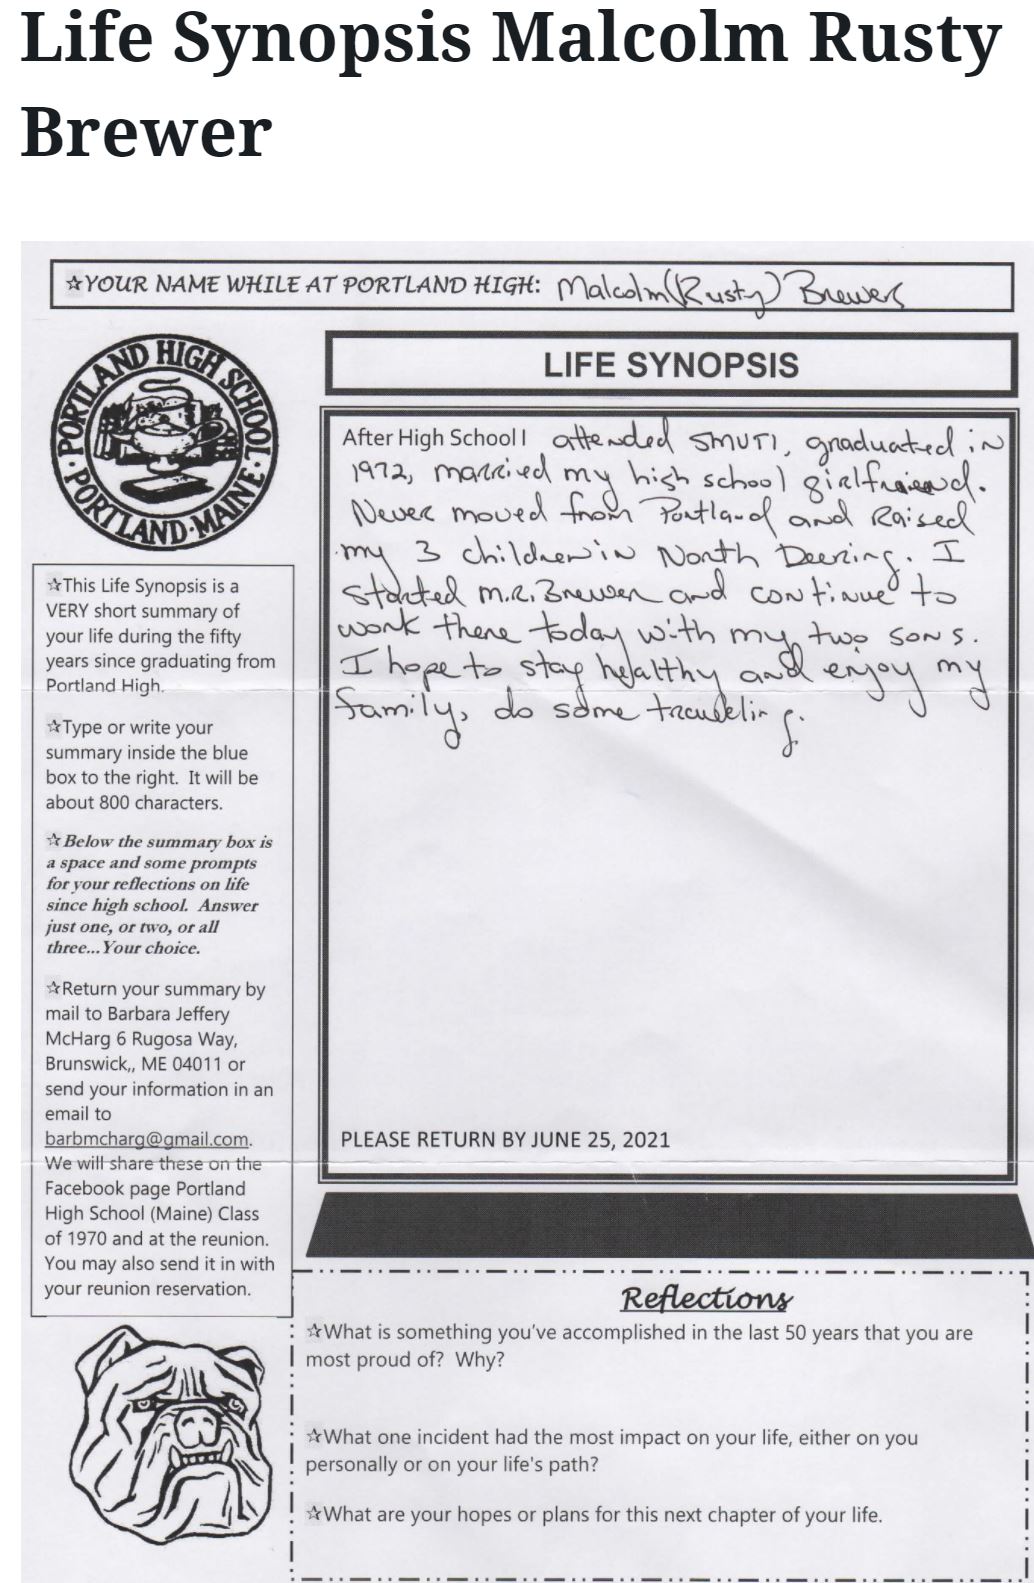 Life Synopsis Malcolm Rusty
Brewer
☆YOUR NAME WHILE AT PORTLAND HIGH: Malcolm (Rusty) Brewer
PORTLAND HIGH SCHOOL
PORTLAND·MAINE
LIFE SYNOPSIS
After High School I attended SMVTI, graduated in
1972, married my high school girlfriend.
Never moved from Portland and Raised
my 3 children in North Deering. I
started M.R. Brewer and continue to
work there today with my two sons.
I hope to stay healthy and enjoy my
family, do some traveling.
PLEASE RETURN BY JUNE 25, 2021
☆This Life Synopsis is a
VERY short summary of
your life during the fifty
years since graduating from
Portland High.
☆Type or write your
summary inside the blue
box to the right. It will be
about 800 characters.
☆Below the summary box is
a space and some prompts
for your reflections on life
since high school. Answer
just one, or two, or all
three... Your choice.
☆Return your summary by
mail to Barbara Jeffery
McHarg 6 Rugosa Way,
Brunswick,, ME 04011 or
send your information in an
email to
barbmcharg@gmail.com.
We will share these on the
Facebook page Portland
High School (Maine) Class
of 1970 and at the reunion.
You may also send it in with
your reunion reservation.
Reflections
☆What is something you've accomplished in the last 50 years that you are
most proud of? Why?
☆What one incident had the most impact on your life, either on you
personally or on your life's path?
☆What are your hopes or plans for this next chapter of your life.